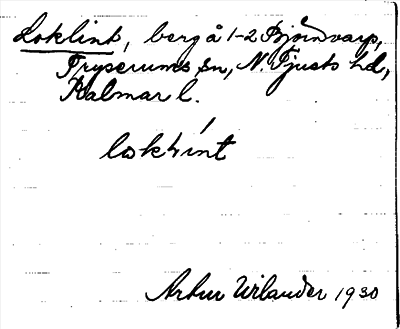 Loklint, berg å 1-2 Björnvarp,
Tryserums sn, N. Tjusts hd,
Kalmar l.
lokḷint
Artur Wilander 1930